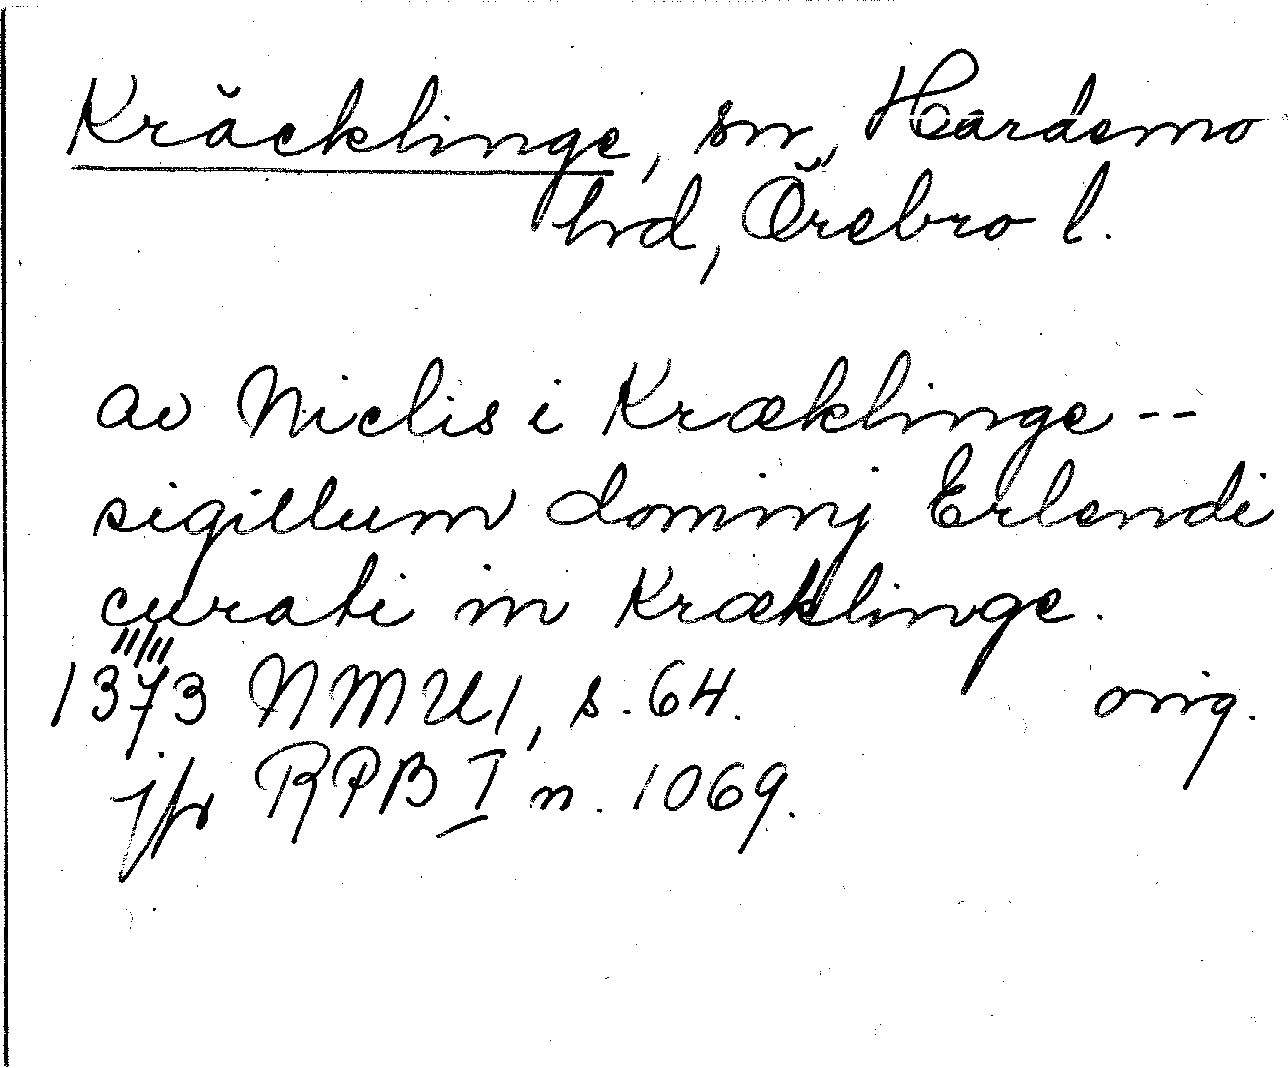 Kräcklinge, sn, Hardemo
hrd, Örebro l.
av Niclis i Kræklinge --
sigillum dominj Erlendi
curati in Kræklinge.
1373 NMU 1, s. 64. orig.
jfr RPB I n. 1069.